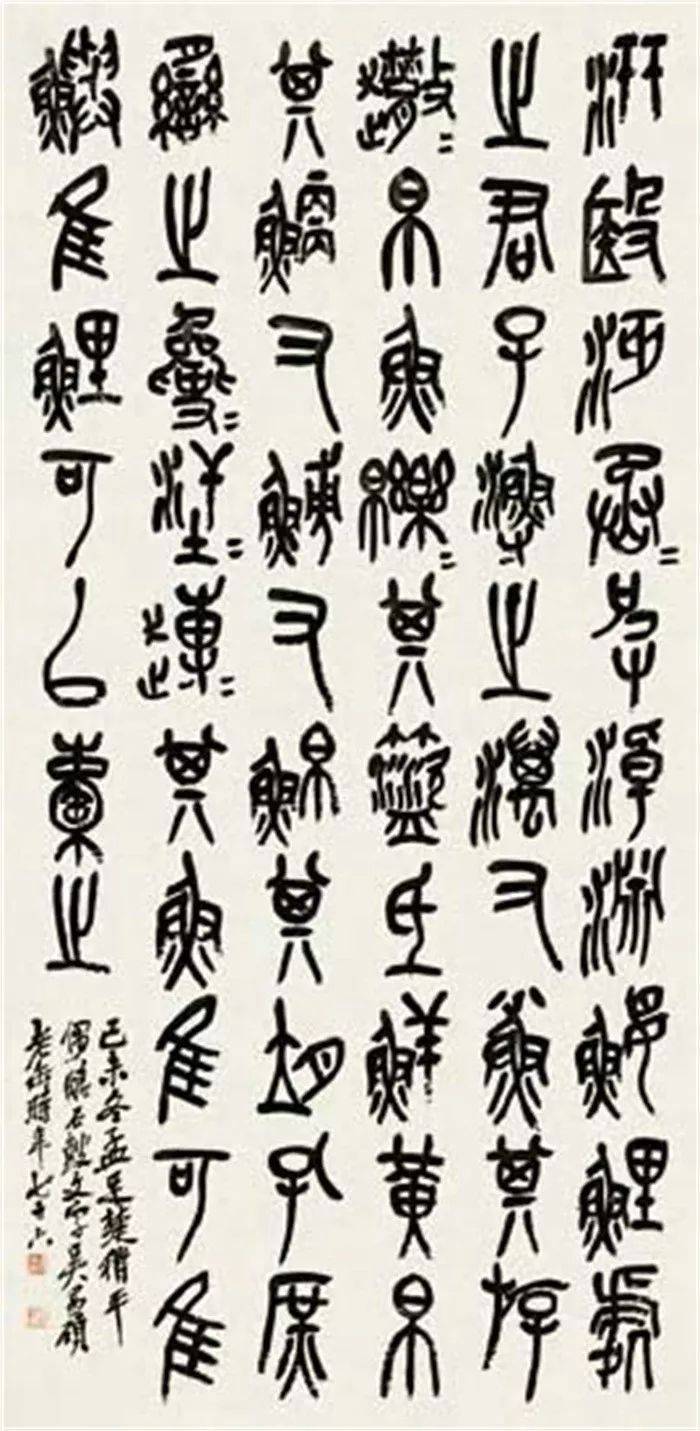 汧殹沔丞=皮淖淵鰋鯉處
之君子漁之澫又小魚其斿
趩=帛魚皪=其𥂗氐鮮黃帛
其鯾又鱄又鮊其胡孔庶
臠之㚟=汗=趍=其魚隹可隹
鱮隹鯉可以橐之
己未冬孟
臨石鼓文 吳昌碩
老缶時年七十六